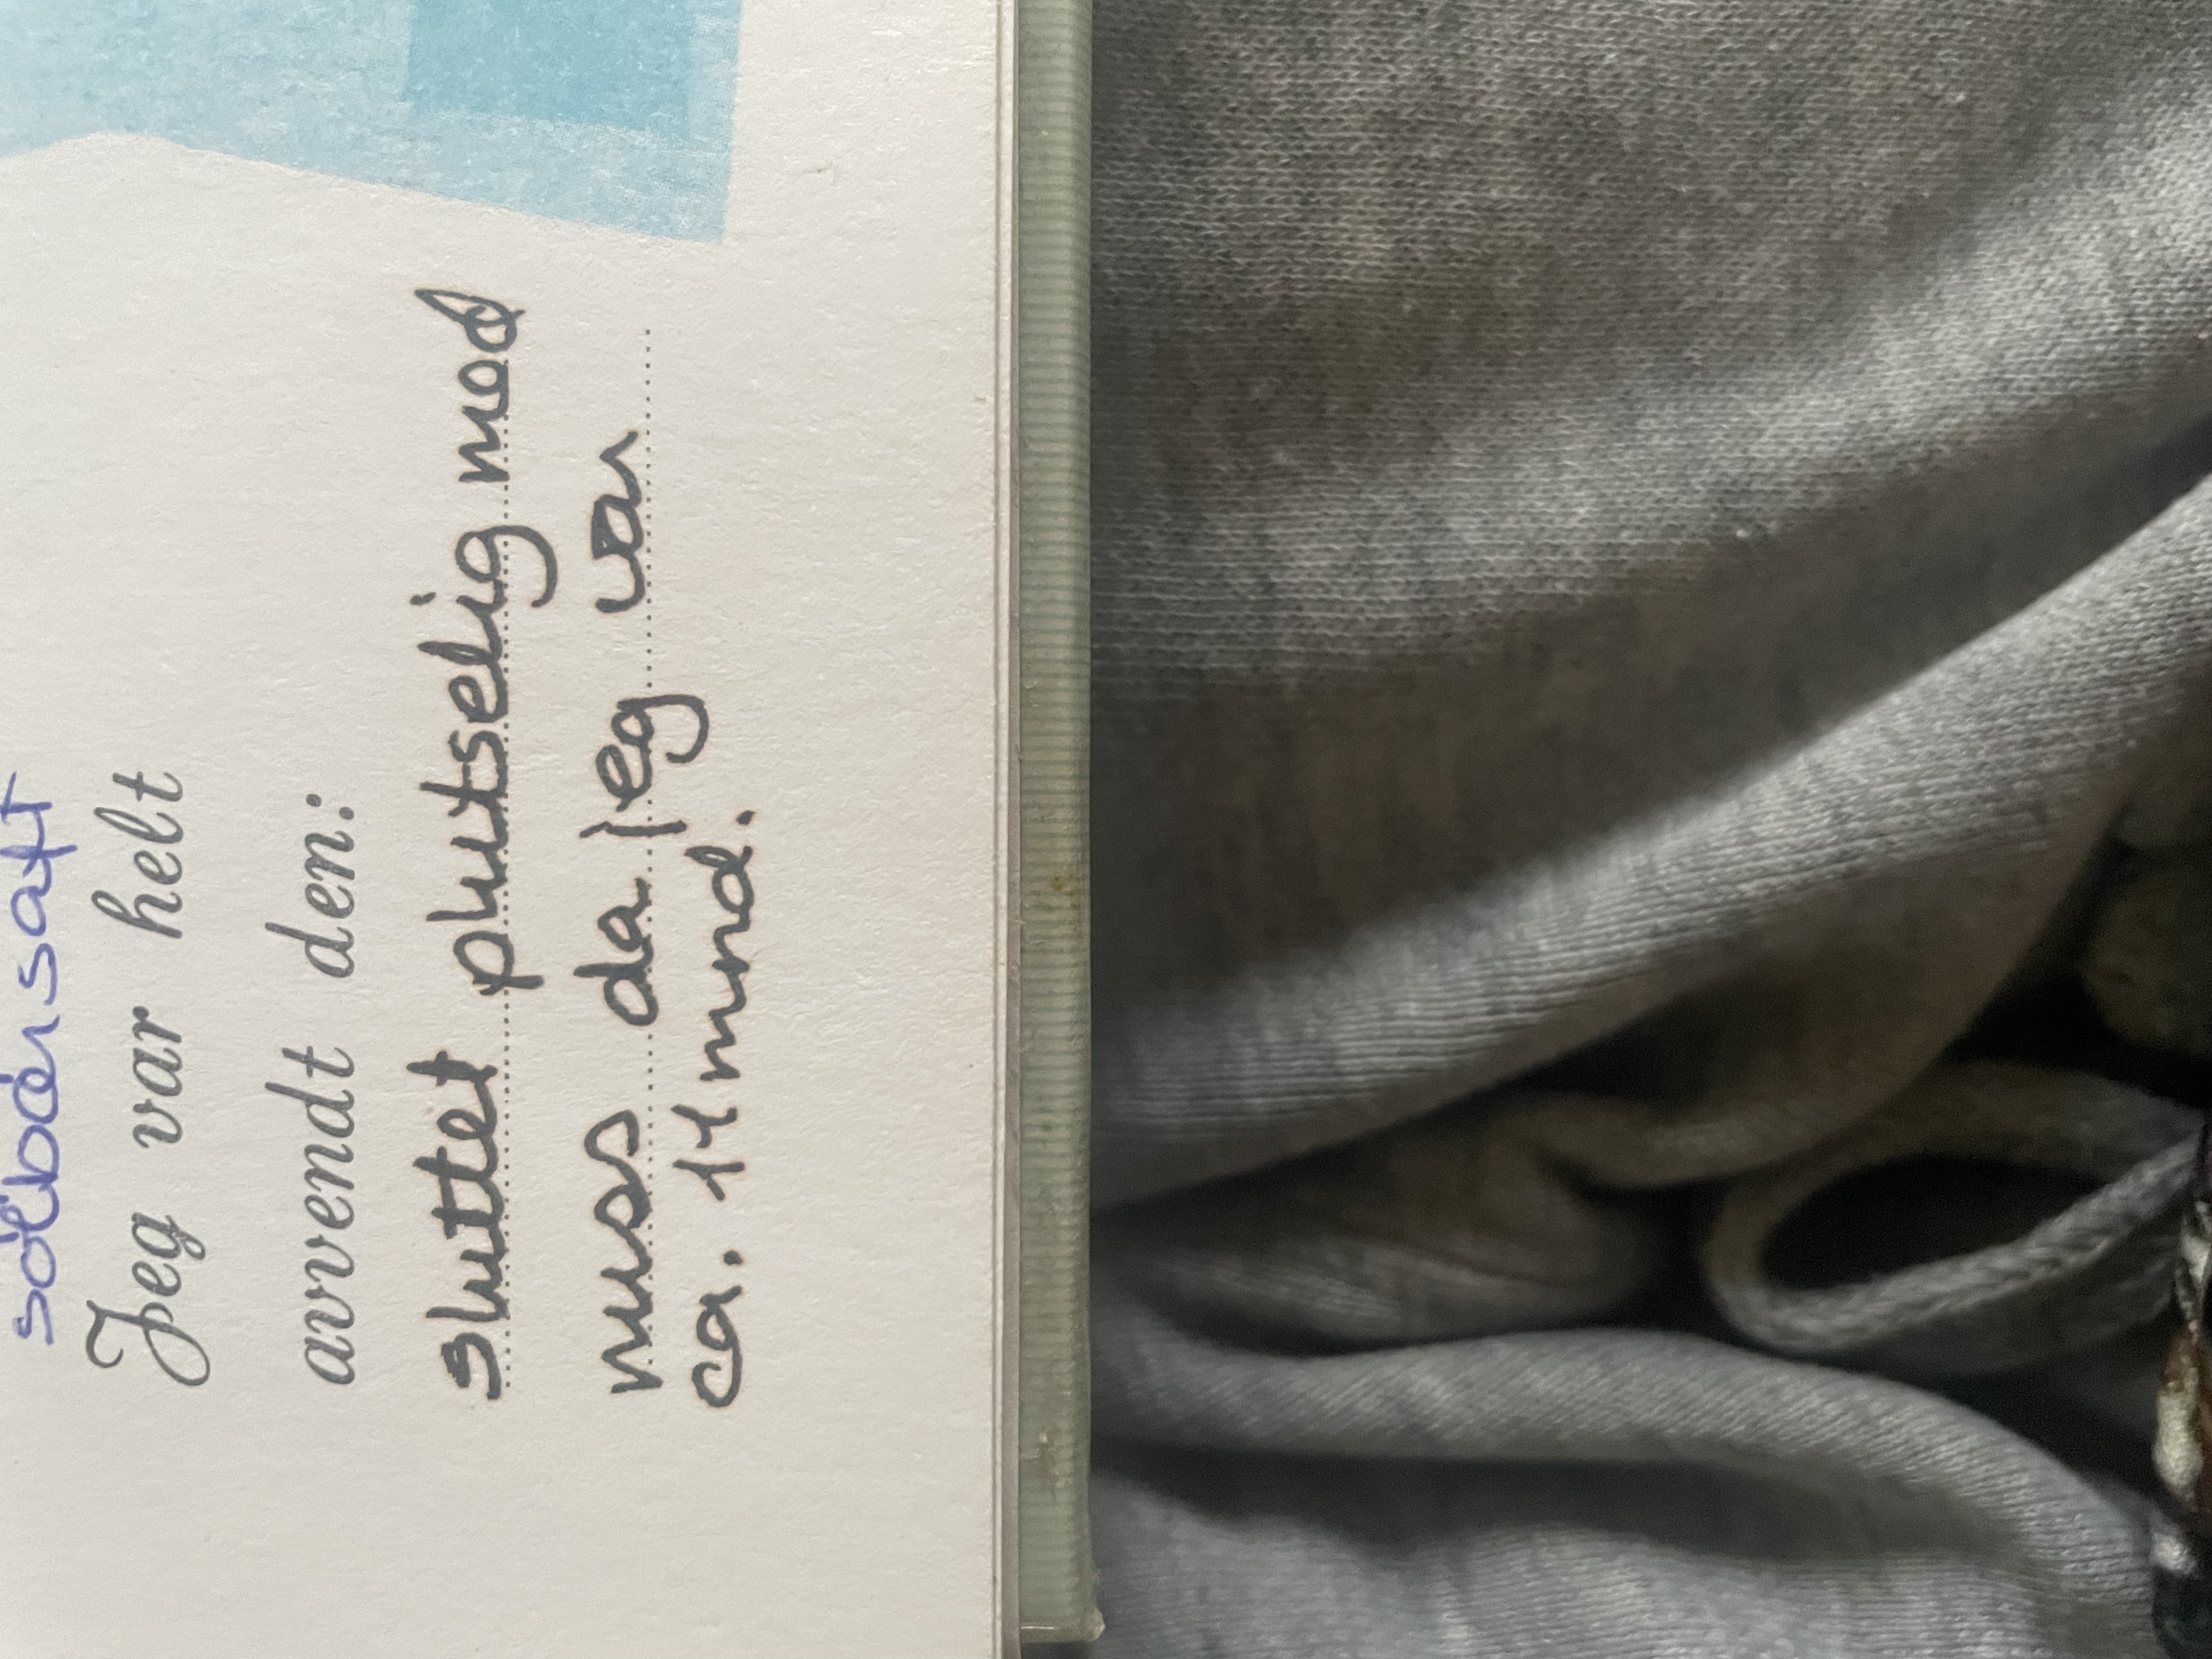 solbærsaft
Jeg var helt
avvendt den:
sluttet plutselig med
nuss da jeg var
ca. 11 mnd.